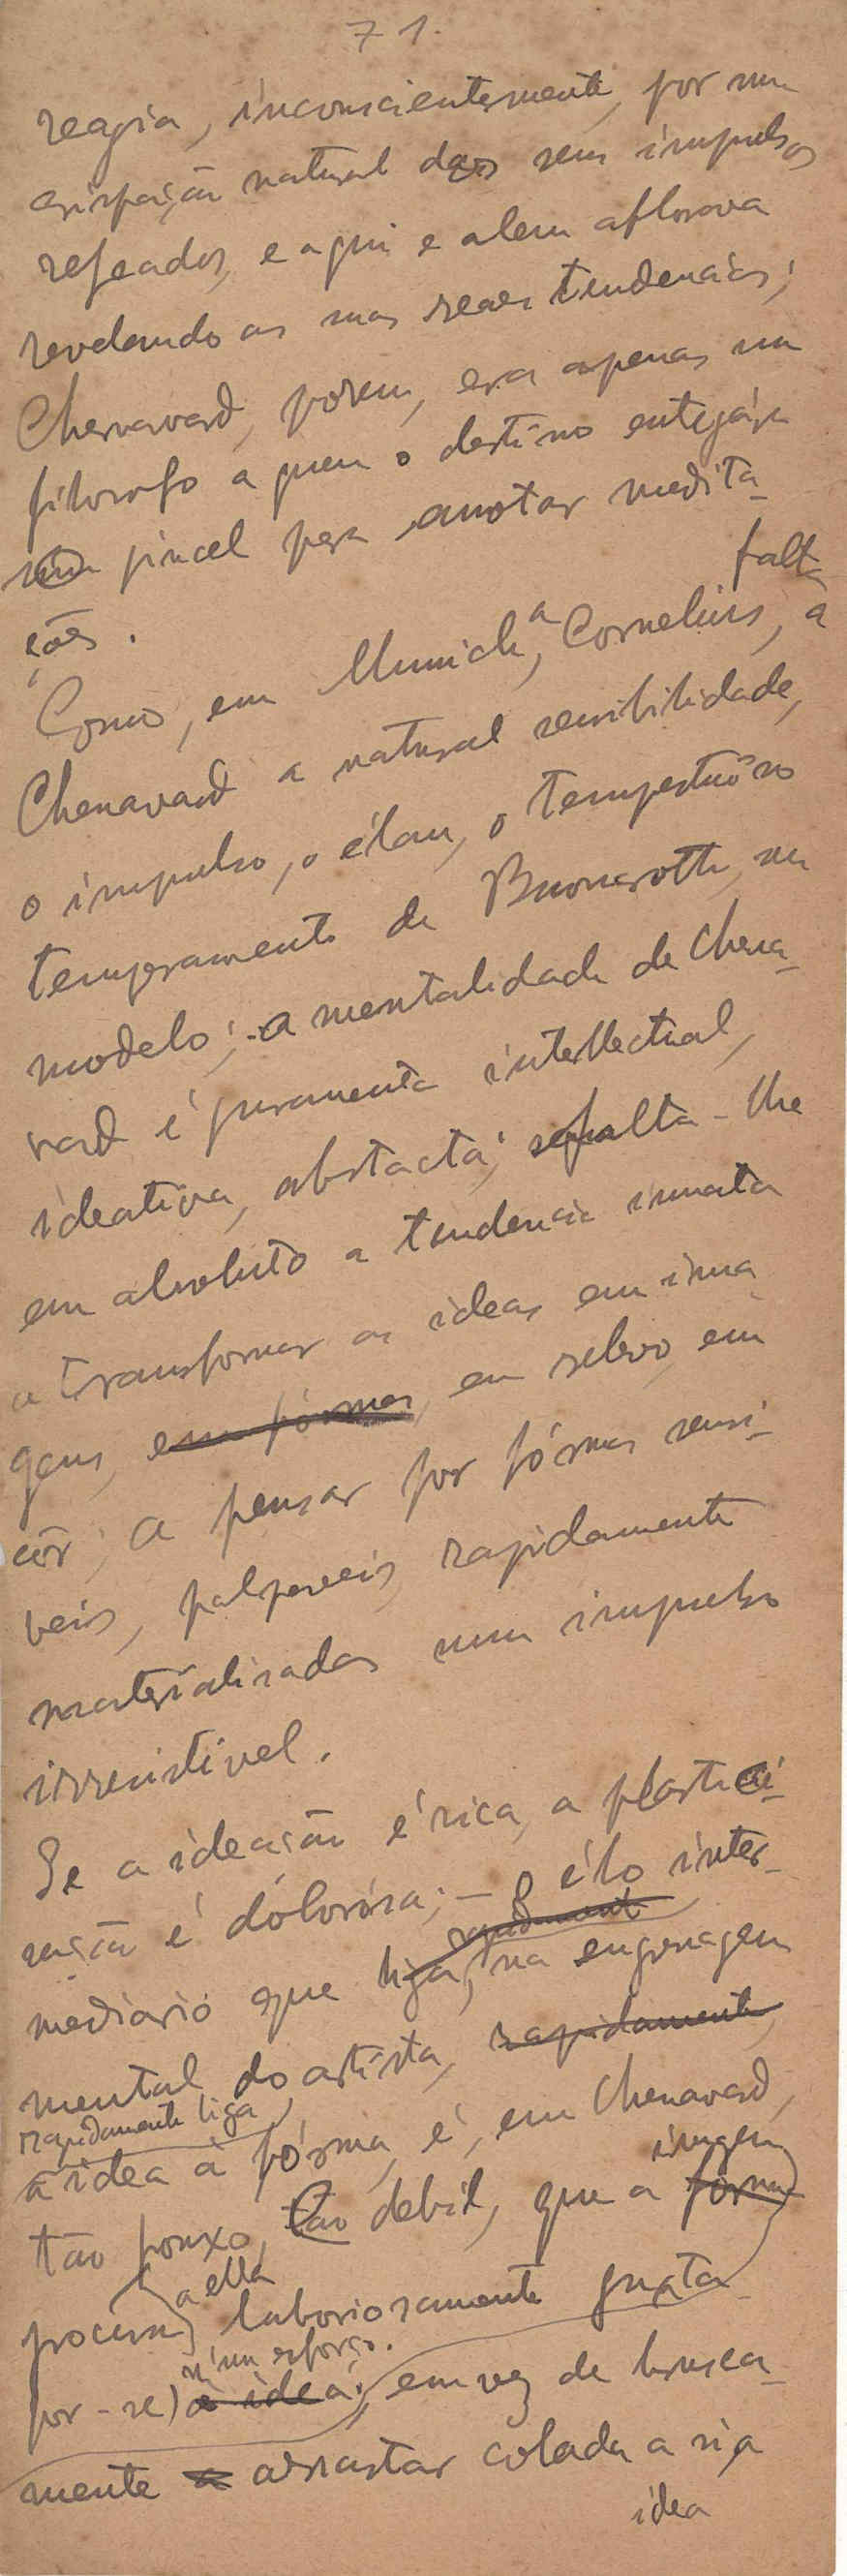 71.
reagia, inconscientemente, por uma
crispação natural dos seus impulsos
refreados, e aqui e alem aflorava
revelando as suas reaes tendencias;
Chenavard, porem, era apenas um
filosofo a quem o destino entregára
um pincel para anotar medita-
ções.
Como, em Munich, a Cornelius, falta a
Chenavard a natural sensibilidade,
o impulso, o élan, o tempestuôso
temperamento de Buonarotti, seu
modelo; - a mentalidade de Chena-
vard é puramente intellectual,
ideativa, abstacta; falta-lhe
em absoluto a tendencia innata
a transformar as ideas em ima-
gens, em fórmas, em relevo, em
côr; a pensar por fórmas sensi-
veis, palpaveis, rapidamente
materialisadas num impulso
irresistivel.
Se a ideação é rica, a plasti-
sação é dolorósa; - O élo inter-
rapidamente
mediario que liga, na engrenagem
mental do artista, rapidamente,
rapidamente liga
a idea à fórma, é, em Chenavard,
imagem
tão frouxo, tão debil, que a forma
a ella
procura laboriosamente justa-
n'um esforço.
por-se) à idea; em vez de brusca-
mente a arrastar colada a si, a
idea